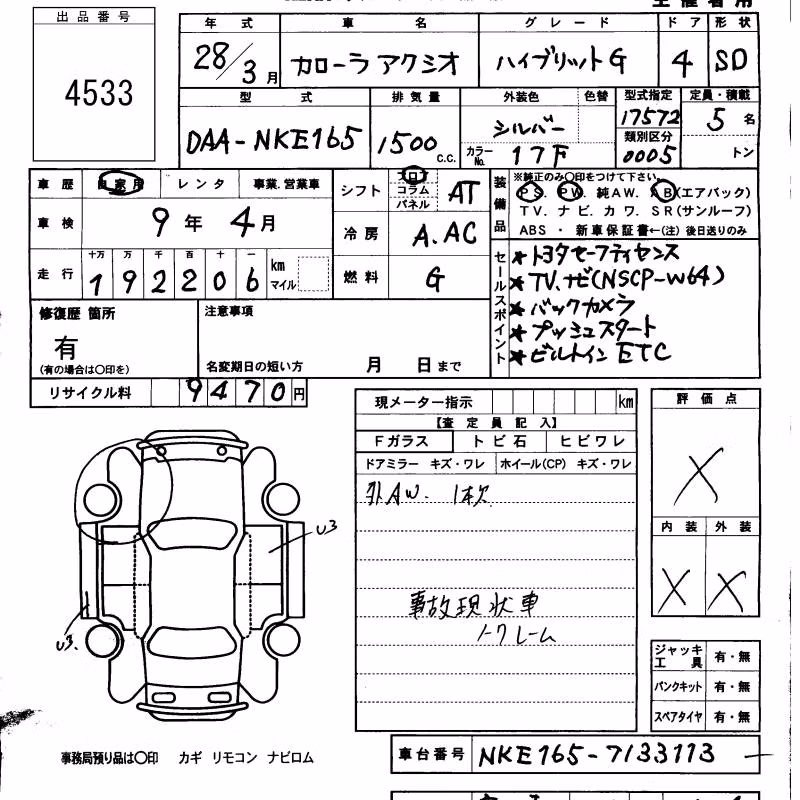 出品番号
4533
年式
28/3月
車名
カローラ アクシオ
グレード
ハイブリットG
ドア
4
形状
SD
型式
DAA-NKE165
排気量
1500 c.c.
外装色
シルバー
色替
カラーNo.
17F
型式指定
17572
類別区分
0005
定員・積載
5名
トン
車歴
自家用
レンタ
事業.営業車
車検
9年4月
走行
十万 万 千 百 十 一
192206
km
マイル
シフト
フロア
コラム
パネル
AT
冷房
A.AC
燃料
G
装備品
※純正のみ〇印をつけて下さい。
PS. PW. 純AW. AB(エアバック)
TV. ナビ. カワ. SR(サンルーフ)
ABS ・ 新車保証書←(注)後日送りのみ
セールスポイント
★トヨタセーフティセンス
★TV.ナビ(NSCP-W64)
★バックカメラ
★プッシュスタート
★ビルトインETC
修復歴 箇所
有
(有の場合は〇印を)
注意事項
名変期日の短い方 月 日まで
リサイクル料
9470円
現メーター指示
km
【査定員記入】
Fガラス
トビ石
ヒビワレ
ドアミラー キズ・ワレ
ホイール(CP) キズ・ワレ
外AW. 1本欠
事故現状車
評価点
X
内装
外装
X
X
U3
U3.
ジャッキ
工具
有・無
パンクキット
有・無
スペアタイヤ
有・無
事務局預り品は〇印 カギ リモコン ナビロム
車台番号
NKE165-7133113